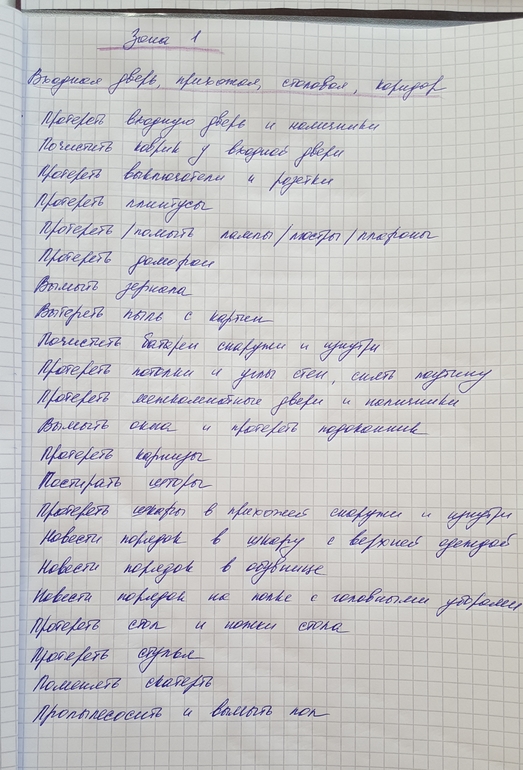 Зона 1
Входная дверь, прихожая, столовая, коридор
Протереть входную дверь и наличники
Почистить коврик у входной двери
Протереть выключатели и розетки
Протереть плинтусы
Протереть/помыть лампы/люстры/плафоны
Протереть домофон
Вымыть зеркала
Вытереть пыль с картин
Почистить батареи снаружи и изнутри
Протереть потолки и углы стен, снять паутину
Протереть межкомнатные двери и наличники
Вымыть окна и протереть подоконник
Протереть карнизы
Постирать шторы
Протереть шкафы в прихожей снаружи и изнутри
Навести порядок в шкафу с верхней одеждой
Навести порядок в обувнице
Навести порядок на полке с головными уборами
Протереть стол и ножки стола
Протереть стулья
Поменять скатерть
Пропылесосить и вымыть пол